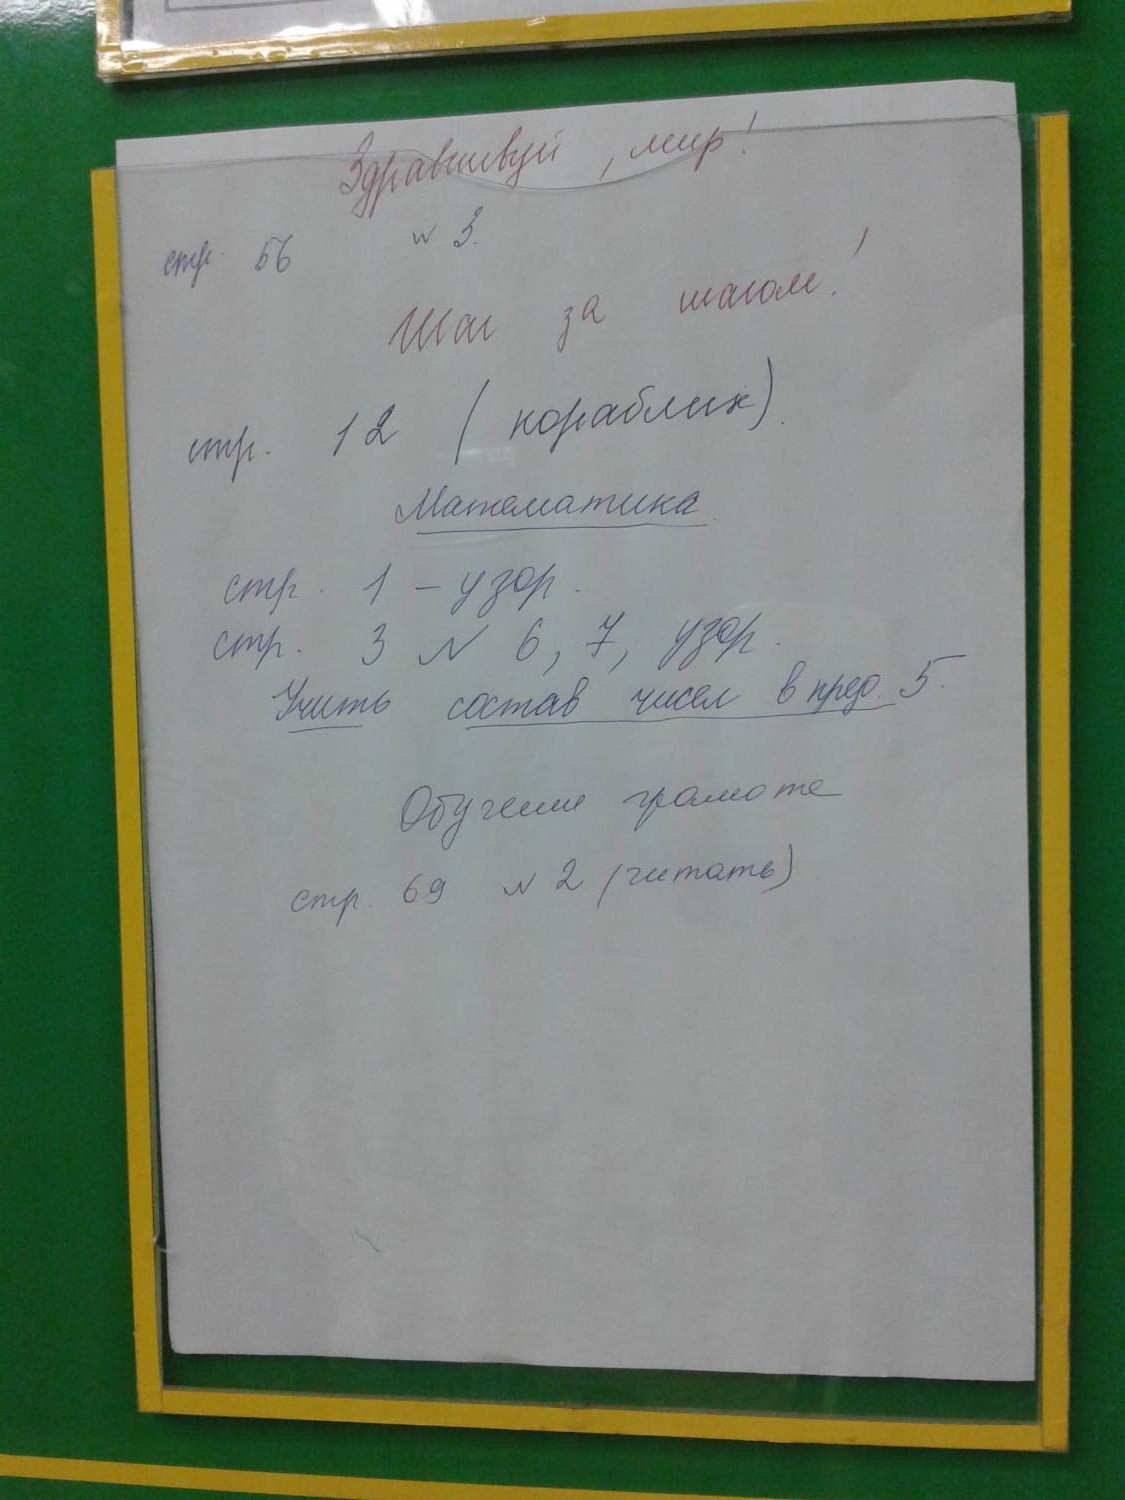 Здравствуй, мир!
стр. 56 N 3.
Шаг за шагом!
стр. 12 (кораблик).
Математика.
стр. 1 – узор.
стр. 3 N 6, 7, узор.
Учить состав чисел в пред. 5.
Обучение грамоте
стр. 69 N 2 (читать)